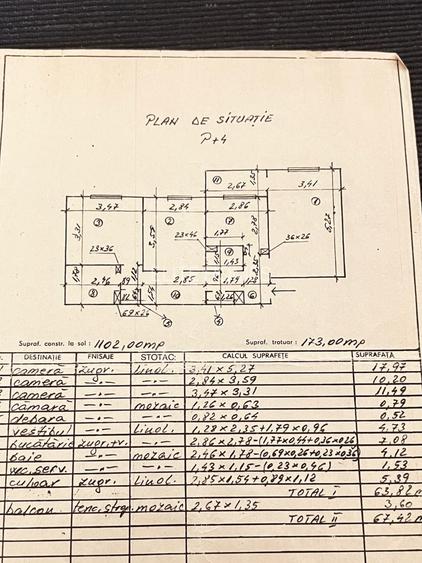 PLAN DE SITUAȚIE
P+4
11
2,67
1,35
3,41
3,47
2,84
2,86
1
3
2
7
2,78
5,27
3,31
3,59
1,77
23×46
36×26
23×36
9
1,43
2,35
1,50
2,46
2,85
1,79
1,28
8
10
1,54
1,26
69×26
5
4
Supraf. constr. la sol : 1102,00mp Supraf. trotuar : 173,00mp
DESTINAȚIE FNISAJE STOTAC: CALCUL SUPRAFEȚE SUPRAFAȚA
1 cameră zugr. linol. 3,41 × 5,27 17,97
2 cameră —„— —„— 2,84 × 3,59 10,20
cameră —„— —„— 3,47 × 3,31 11,49
cămară —„— mozaic 1,26 × 0,63 0,79
debara —„— —„— 0,82 × 0,64 0,52
vestibul —„— linol. 1,28 × 2,35 + 1,79 × 0,96 4,73
bucătărie zugr.+v. —„— 2,86 × 2,78-(1,77×0,44+0,36×0,26 7.08
baie —„— mozaic 2,46 × 1,78-(0,69×0,26+0,23×0,36) 4,12
wc. serv. —„— —„— 1,43 × 1,15-(0,23×0,46) 1,53
culoar zugr. linol. 2,85×1,54+0,89×1,12 5,39
TOTAL I 63,82 m
balcon. mozaic 2,67 × 1,35 3,60
TOTAL II 67,42 m